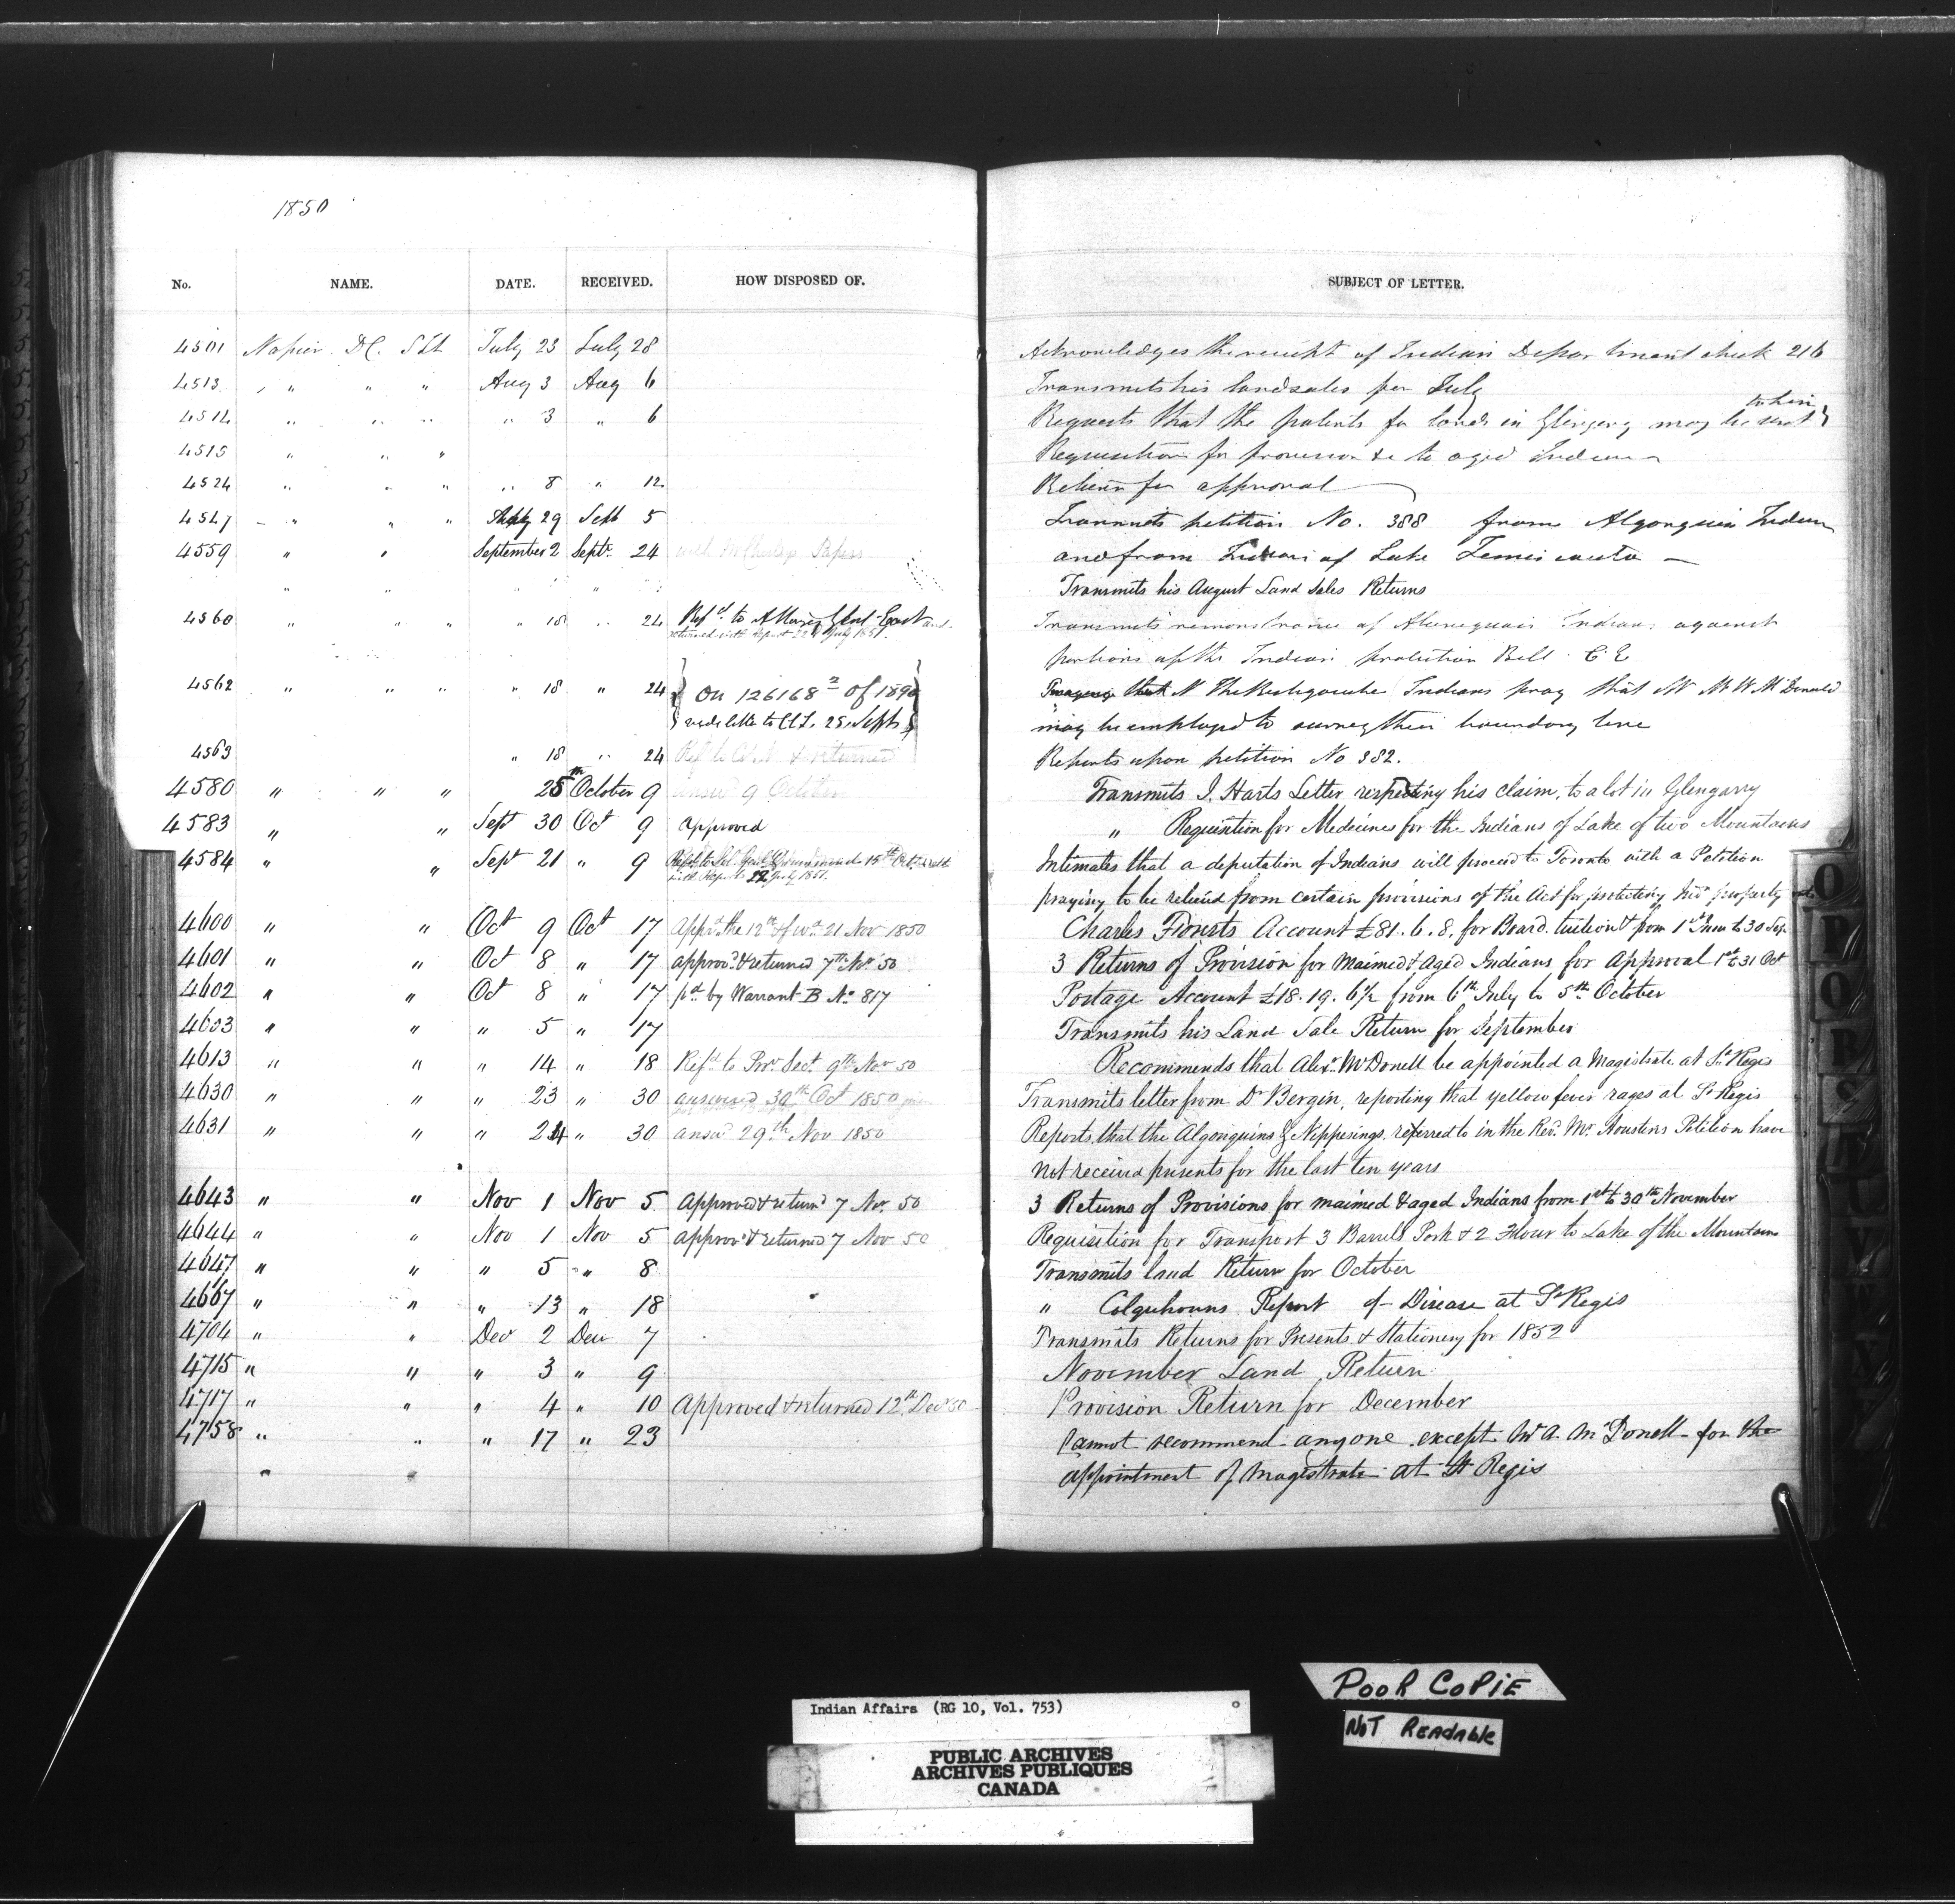 1850
No. NAME. DATE. RECEIVED. HOW DISPOSED OF. SUBJECT OF LETTER.
4501 Napier D.C. July 23 July 28 Acknowledges the receipt of Indian Department check 216
4513 " " " Aug 3 Aug 6 Transmits his land sales per July
4514 " " " " 3 " 6 Requests that the patents for lands in Glengary may be sent to him
4515 " " " Requisition for provision &c to aged Indians
4524 " " " " 8 " 12 Return for approval
4547 " " " 29 Sept 5 Transmits petition No. 388 from Algonquin Indians
4559 " " September 2 Septr 24 Papers and from Indians of Lake
" " " " Transmits his August Land Sales Returns
4560 " " " " 18 " 24 Refd to Attorney Genl East and Transmits remonstrance of Indians against
returned with report 22d July 1851. portions of the Indian protection Bill C.E
4562 " " " " 18 " 24 On 126168 of 1890 Indians pray that Mr McDonald
vide letter to C.C.L. 25 Septr may be employed to survey their boundary line
4563 " 18 " 24 & returned Reports upon petition No 382.
4580 " " " 25th October 9 answd 9 October Transmits I. Harts Letter respecting his claim, to a lot in Glengarry
4583 " " Sept 30 Oct 9 Approved " Requisition for Medecines for the Indians of Lake of two Mountains
4584 " " Sept 21 " 9 15th Intimates that a deputation of Indians will proceed to Toronto with a Petition
with Rep. 22 July 1851. praying to be relieved from certain provisions of the Act for protecting Ind property
4600 " " Oct 9 Oct 17 21 Nov 1850 Charles Account £81.6.8. for Board, tuition & from 1st to 30 Sep.
4601 " " Oct 8 " 17 approvd & returned 7th Nov 50 3 Returns of Provision for Maimed & Aged Indians for Approval 1st to 31 Oct
4602 " " Oct 8 " 17 pd by Warrant B No 817 Postage Account £18.19.6½ from 6th July to 5th October
4603 " " " 5 " 17 Transmits his Land Sale Return for September
4613 " " " 14 " 18 Refd to Prov. Sec. 9th Nov 50 Recommends that Alexr McDonell be appointed a Magistrate at St Regis
4630 " " " 23 " 30 answered 30th Oct 1850 Transmits letter from Dr Bergin, reporting that yellow fever rages at St Regis
4631 " " " 24 " 30 answd 29th Nov 1850 Reports that the Algonquins & Nippesings, referred to in the Revd Mr Petition have
not received presents for the last ten years
4643 " " Nov 1 Nov 5 Approved & returnd 7 Nov 50 3 Returns of Provisions for maimed & aged Indians from 1st to 30th November
4644 " " Nov 1 Nov 5 approvd & returned 7 Nov 50 Requisition for Transport 3 Barrels Pork & 2 Flour to Lake of the Mountain
4647 " " " 5 " 8 Transmits land Return for October
4667 " " " 13 " 18 " Colquhouns Report of Disease at St Regis
4704 " " Dec 2 Dec 7 Transmits Returns for Presents & Stationery for 1852
4715 " " " 3 " 9 November Land Return
4717 " " " 4 " 10 Approved & returned 12th Dec 50 Provision Return for December
4758 " " " 17 " 23 Cannot recommend anyone except Mr A. McDonell for the
appointment of Magistrate at St Regis
POOR COPIE
NOT READABLE
Indian Affairs (RG 10, Vol. 753)
PUBLIC ARCHIVES
ARCHIVES PUBLIQUES
CANADA